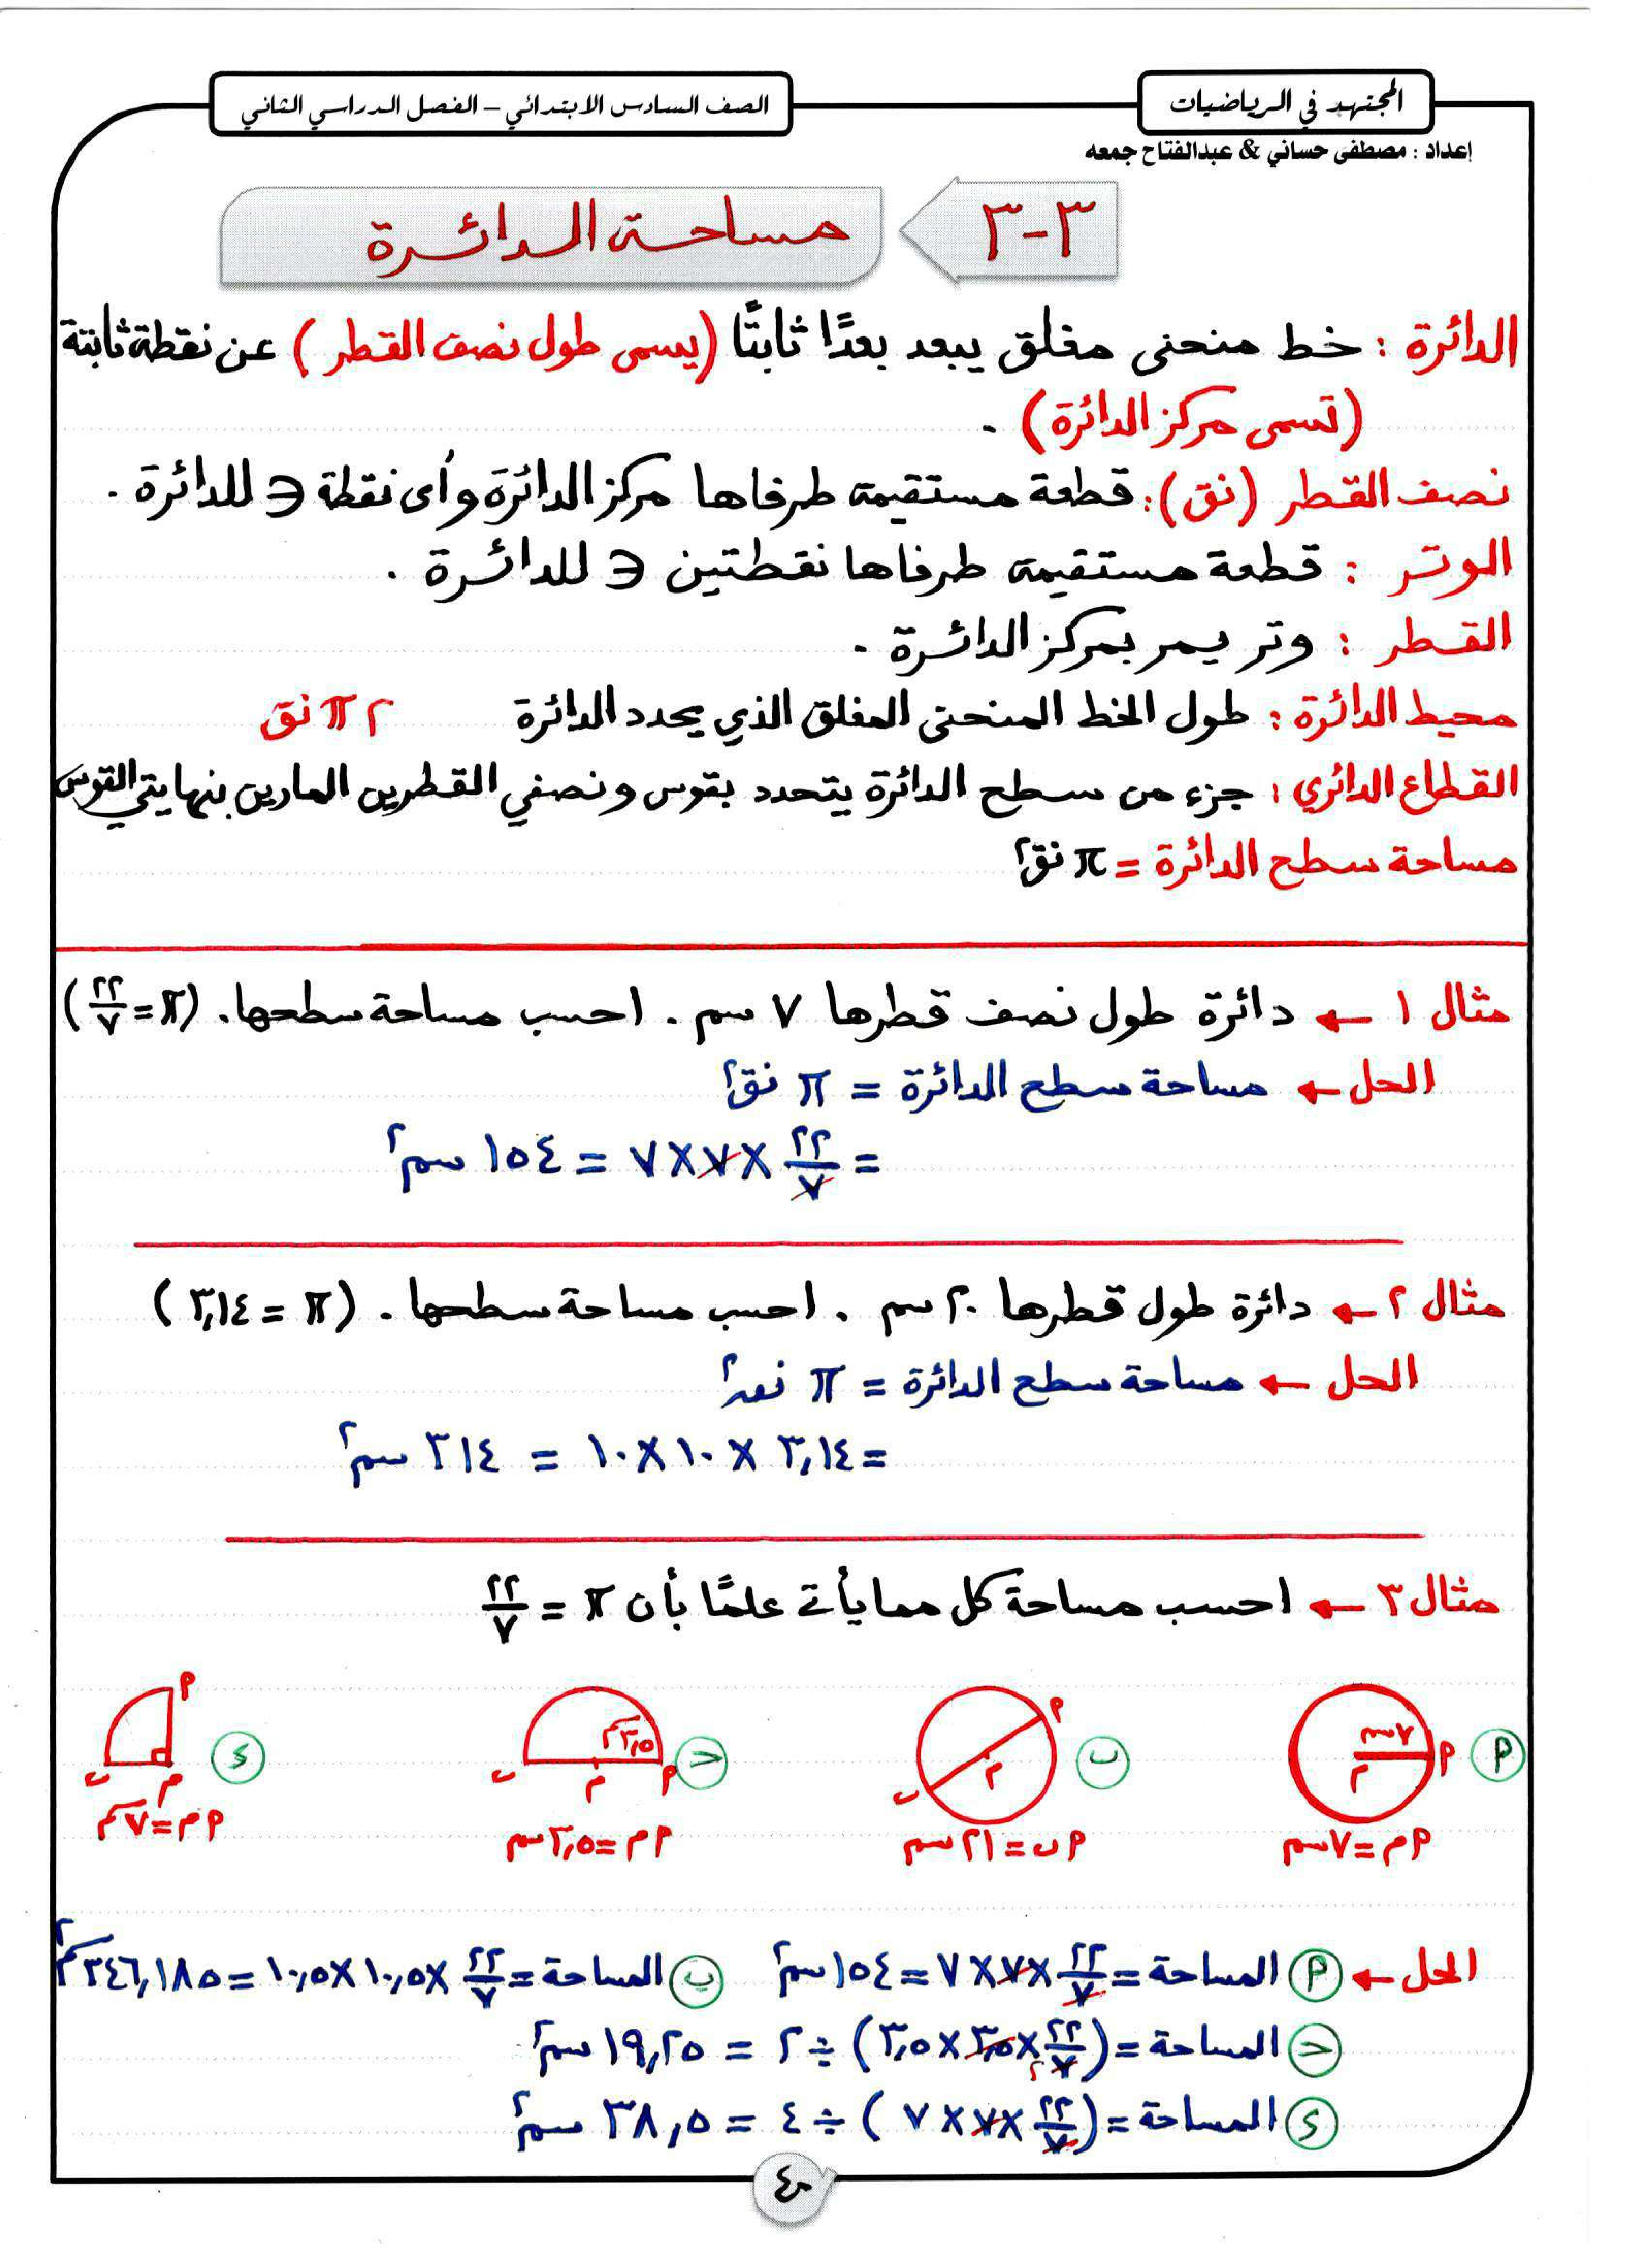 المجتهد في الرياضيات
الصف السادس الابتدائي – الفصل الدراسي الثاني
إعداد : مصطفى حساني & عبدالفتاح جمعه
٣-٣
مساحة الدائرة
الدائرة : خط منحنى مغلق يبعد بعدًا ثابتًا (يسمى طول نصف القطر) عن نقطة ثابتة
(تسمى مركز الدائرة) .
نصف القطر (نق): قطعة مستقيمة طرفاها مركز الدائرة وأى نقطة ∋ للدائرة .
الوتر : قطعة مستقيمة طرفاها نقطتين ∋ للدائرة .
القطر : وتر يمر بمركز الدائرة .
محيط الدائرة : طول الخط المنحنى المغلق الذي يحدد الدائرة ٢ π نق
القطاع الدائري : جزء من سطح الدائرة يتحدد بقوس ونصفي القطرين المارين بنهايتي القوس
مساحة سطح الدائرة = π نق٢
مثال ١ ← دائرة طول نصف قطرها ٧ سم . احسب مساحة سطحها. (π = ٢٢/٧)
الحل ← مساحة سطح الدائرة = π نق٢
= ٢٢/٧ × ٧ × ٧ = ١٥٤ سم٢
مثال ٢ ← دائرة طول قطرها ٢٠ سم . احسب مساحة سطحها . (π = ٣,١٤)
الحل ← مساحة سطح الدائرة = π نق٢
= ٣,١٤ × ١٠ × ١٠ = ٣١٤ سم٢
مثال ٣ ← احسب مساحة كل مما يأتي علمًا بأن π = ٢٢/٧
أ ٧سم م أ
أم = ٧سم
ب أ م ب
أب = ٢١ سم
ح ٣,٥سم أ م ب
أم = ٣,٥ سم
د أ م ب
أم = ٧سم
الحل ← أ المساحة = ٢٢/٧ × ٧ × ٧ = ١٥٤ سم٢ ب المساحة = ٢٢/٧ × ١٠,٥ × ١٠,٥ = ٣٤٦,١٨٥ سم٢
ح المساحة = (٢٢/٧ × ٣,٥ × ٣,٥) ÷ ٢ = ١٩,٢٥ سم٢
د المساحة = (٢٢/٧ × ٧ × ٧) ÷ ٤ = ٣٨,٥ سم٢